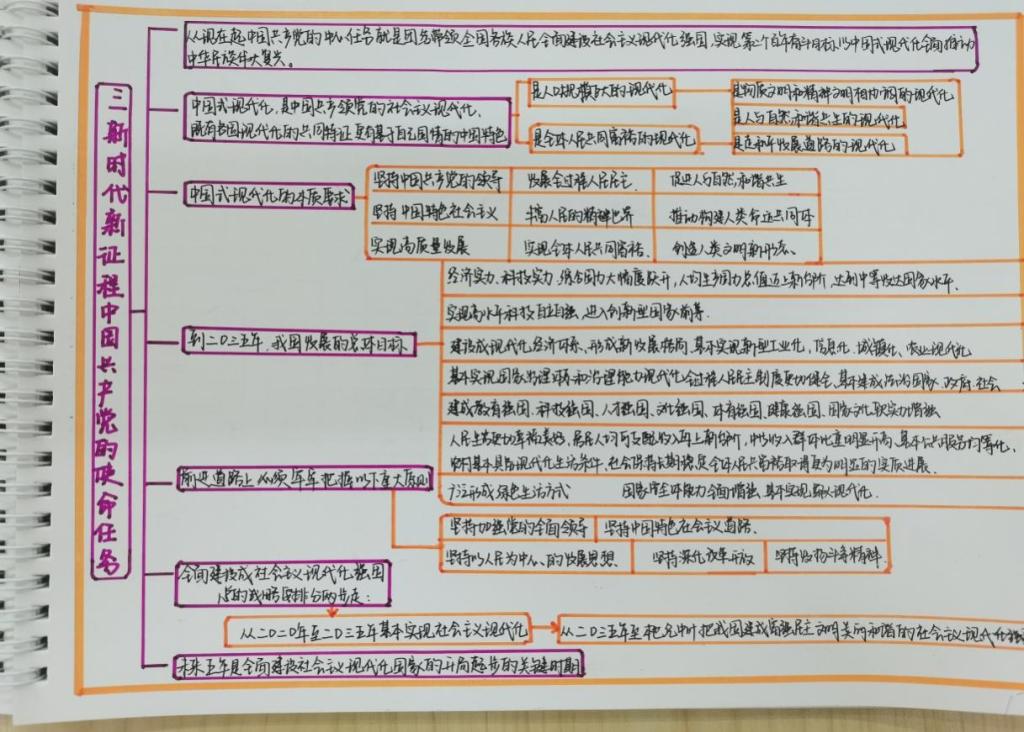 三 新时代新征程中国共产党的使命任务
从现在起中国共产党的中心任务就是团结带领全国各族人民全面建设社会主义现代化强国,实现第二个百年奋斗目标,以中国式现代化全面推动
中华民族伟大复兴。
中国式现代化,是中国共产领党的社会主义现代化、
既有各国现代化的共同特征更有基于自己国情的中国特色
是人口规模巨大的现代化
是全体人民共同富裕的现代化
是物质文明和精神文明相协调的现代化
是人与自然和谐共生的现代化
是走和平发展道路的现代化
中国式现代化的本质要求
坚持中国共产党的领导 发展全过程人民民主 促进人与自然和谐共生
坚持中国特色社会主义 丰富人民的精神世界 推动构建人类命运共同体
实现高质量发展 实现全体人民共同富裕、 创造人类文明新形态、
到二〇三五年,我国发展的总体目标
经济实力、科技实力、综合国力大幅度跃升,人均生产国力总值迈上新台阶,达到中等发达国家水平、
实现高水平科技自立自强,进入创新型国家前列
建设成现代化经济体系、形成新发展格局,基本实现新型工业化,信息化、城镇化、农业现代化
基本实现国家治理体系和治理能力现代化全过程人民民主制度更加健全、基本建成法治国家、政府、社会
建成教育强国、科技强国、人才强国、文化强国、体育强国、健康强国、国家文化软实力增强
人民生活更加幸福美好,居民人均可支配收入再上新台阶,中等收入群体比重明显升高、基本公共服务均等化、
农村基本具备现代化生活条件,社会保持长期稳定全体人民共富裕取得更为明显的实质进展、
广泛形成绿色生活方式 国家安全体系能力全面增强、基本实现 现代化、
前进道路上必须牢牢把握以下重大原则
坚持加强党的全面领导 坚持中国特色社会主义道路、
坚持以人民为中心、的发展思想、 坚持深化改革开放 坚持发扬斗争精神、
全面建设成社会主义现代化强国
总的战略安排分两步走:
从二〇二〇年至二〇三五年基本实现社会主义现代化
从二〇三五年至本世纪中叶把我国建成富强民主文明美丽和谐的社会主义现代化强
未来五年是全面建设社会主义现代化国家的开局起步的关键时期